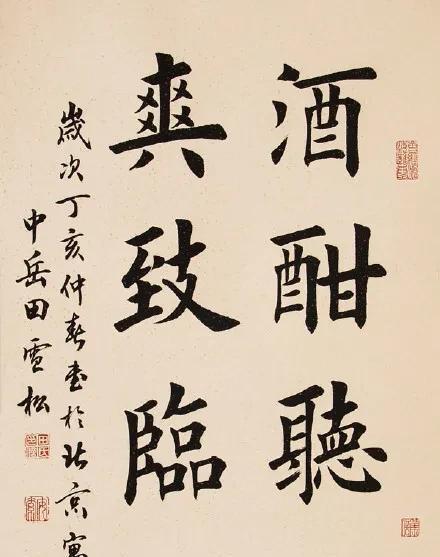 酒酣聽
興致臨
歲次丁亥仲春書於北京寓
中岳田雪松